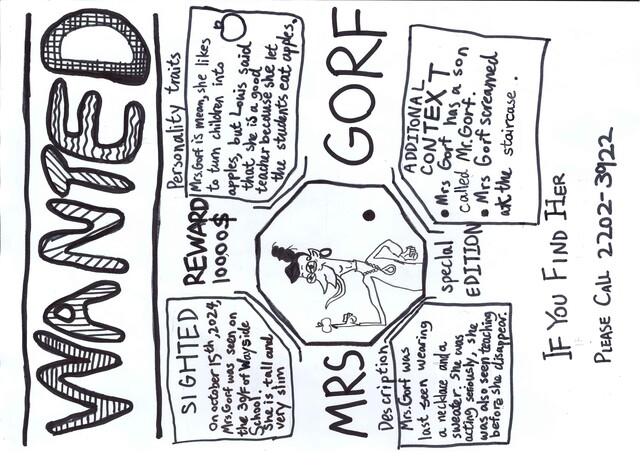 WANTED
SIGHTED
On october 15th 2024,
Mrs.Gorf was seen on
the 30/F of Wayside
School.
She is tall and,
very slim
REWARD
100,00$
Personality traits
Mrs.Gorf is mean, she likes
to turn children into
apples, but Louis said
that she is a good
teacher because she let
the students eat apples.
MRS
GORF
Description
Mrs.Gorf was
last seen wearing
a necklace and a
sweater. She was
acting seriously, she
was also seen teaching
before she disappear.
special
EDITION
ADDITONAL
CONTEXT
• Mrs Gorf has a son
called Mr.Gorf.
• Mrs Gorf screamed
at the staircase.
IF YOU FIND HER
PLEASE CALL 2202-3922